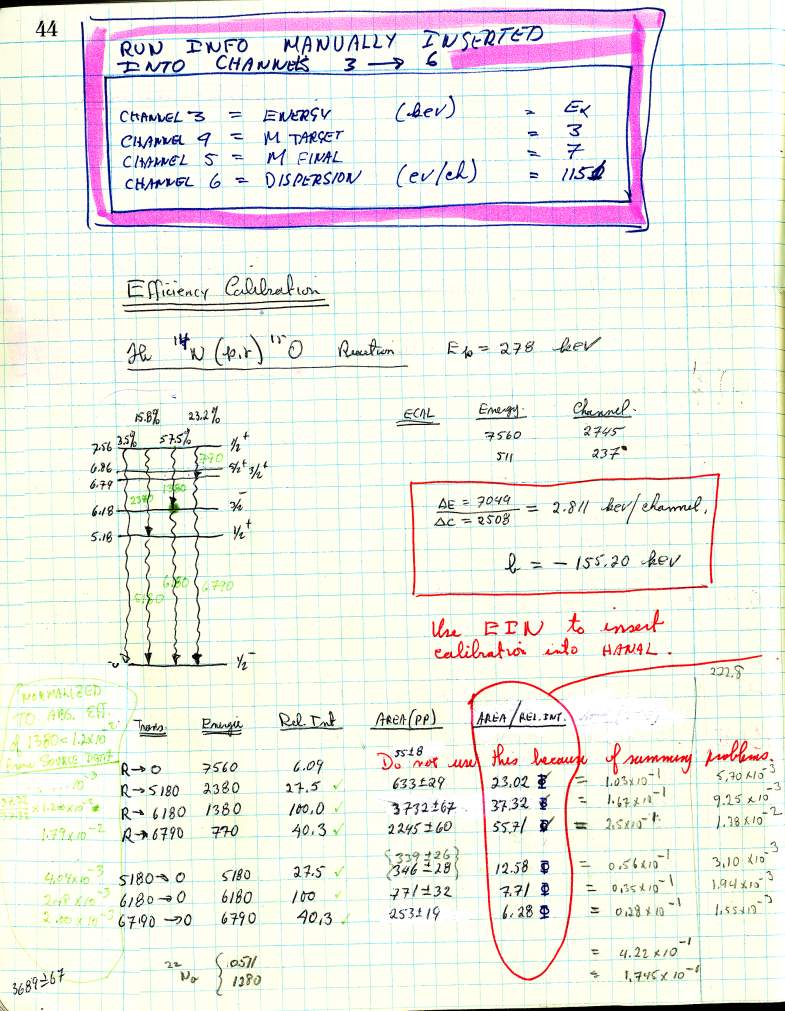 44
RUN INFO MANUALLY INSERTED
INTO CHANNELS 3 → 6
CHANNEL 3 = ENERGY (keV) = Ex
CHANNEL 4 = M TARGET = 3
CHANNEL 5 = M FINAL = 7
CHANNEL 6 = DISPERSION (ev/ch) = 115
Efficiency Calibration
The 14N (p,γ) 15O Reaction Ep = 278 keV
15.8% 23.2%
7.56 3.5% 57.5% 1/2+
770
6.86 5/2+ 3/2+
6.79
2380 1380
6.18 3/2-
5.18 1/2+
5180 6180 6790
1/2-
ECAL Energy Channel
7560 2745
511 237
ΔE = 7049
ΔC = 2508
= 2.811 keV/channel,
b = -155.20 keV
Use EIN to insert
calibration into HANAL.
222.8
NORMALIZED
TO ABS. EFF.
of 1380 = 1.2x10
from SOURCE
Trans. Energie Rel Int AREA(PP) AREA/REL.INT.
55±8
Do not use this because of summing problems.
R→0 7560 6.09
R→5180 2380 27.5 ✓ 633±29 23.02 = 1.03x10-1 5.70x10-3
R→6180 1380 100.0 ✓ 3732±67 37.32 = 1.67x10-1 9.25x10-3
1.79x10-2 R→6790 770 40.3 ✓ 2245±60 55.71 = 2.5x10-1 1.38x10-2
{339±26}
4.04x10-3 5180→0 5180 27.5 ✓ 346±28 12.58 = 0.56x10-1 3.10x10-3
2.48x10-3 6180→0 6180 100 ✓ 771±32 7.71 = 0.35x10-1 1.94x10-3
6790→0 6790 40.3 ✓ 253±19 6.28 = 0.28x10-1 1.55x10-3
= 4.22x10-1
= 1.745x10-1
22Na { .0511
1280
3689±67